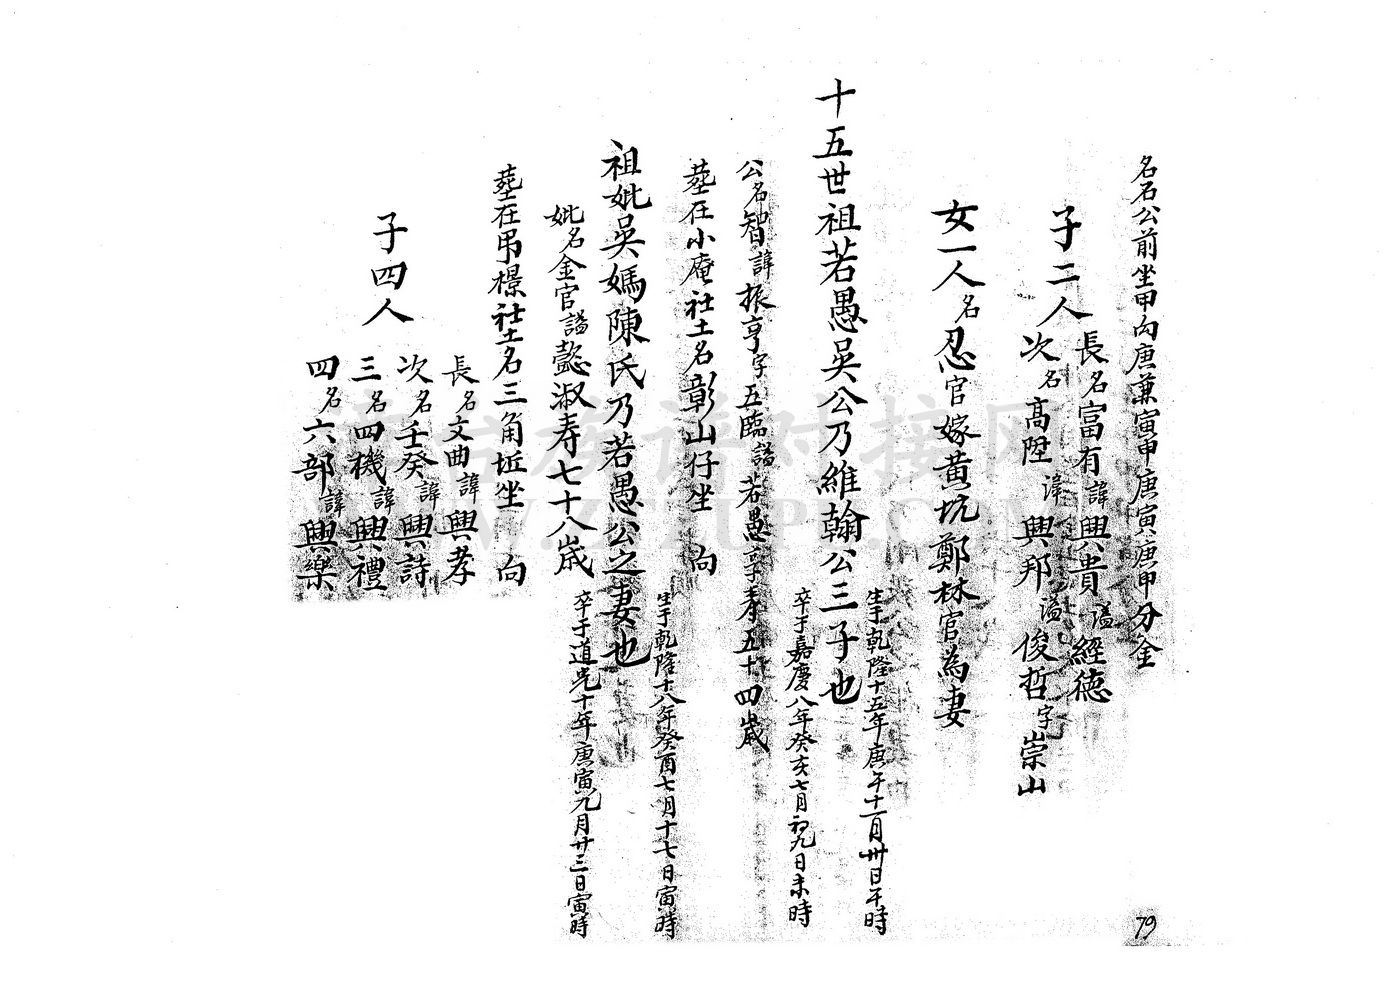 名石公前坐甲向庚兼寅申庚寅庚申分金
子二人
長名富有諱興貴謚經德
次名高陞諱興邦謚俊哲字崇山
女一人名忍官嫁黄坑鄭林官為妻
十五世祖若愚吳公乃維翰公三子也
生于乾隆十五年庚午十一月卅日午時
卒于嘉慶八年癸亥七月初九日未時
公名智諱振亨字五臨謚若愚享寿五十四歲
塟在小庵社土名彰山仔坐 向
祖妣吳媽陳氏乃若愚公之妻也
生于乾隆十八年癸酉七月十七日寅時
卒于道光十年庚寅九月廿三日寅時
妣名金官謚懿淑寿七十八歲
塟在吊橯社土名三角坵坐 向
子四人
長名文曲諱興孝
次名壬癸諱興詩
三名四機諱興禮
四名六部諱興樂
79